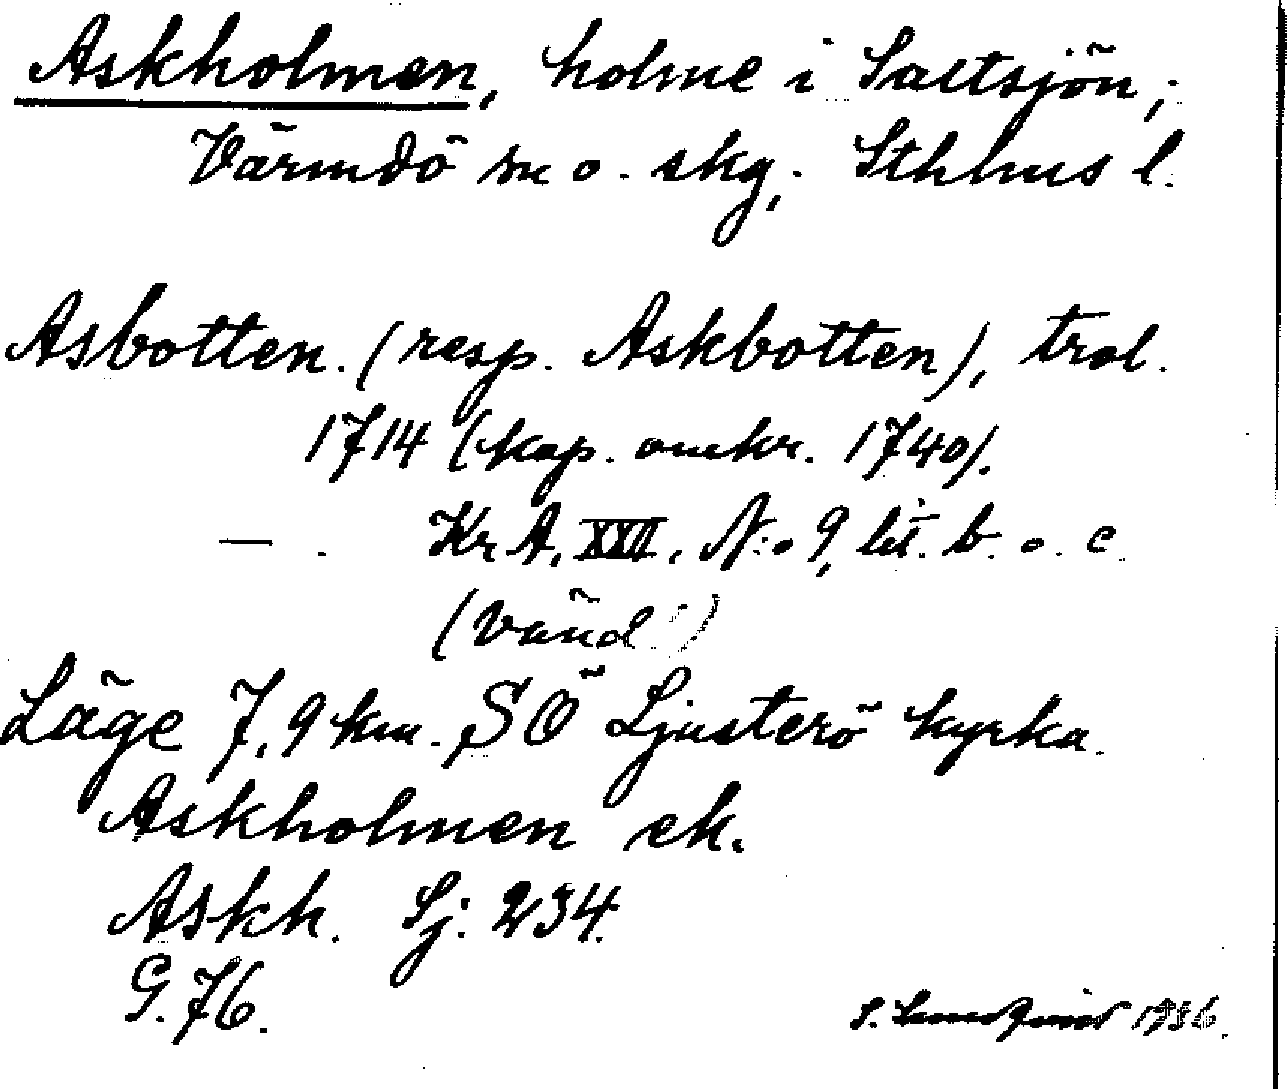 Askholmen, holme i Saltsjön,
Värmdö m o. skg. Sthlms l.
Asbotten. (resp. Askbotten), trol.
1714 (kop. omkr. 1740).
— . Kr. A. XXII. N:o 9, lit. b. o. c.
(Vänd!)
Läge 7,9 km. SÖ Ljusterö kyrka.
Askholmen ek.
Askh. Sj: 234.
G. 76.
S. 1936.